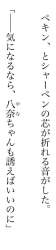 ペキン、とシャーペンの芯が折れる音がした。
「――気になるなら、八奈ちゃんも誘えばいいのに」